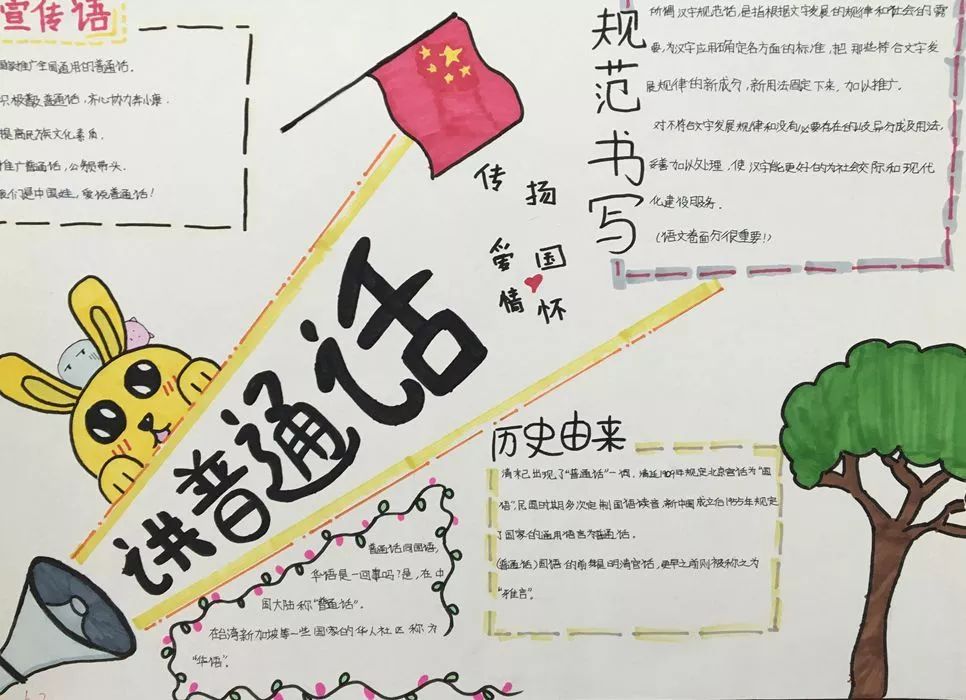 宣传语
推广全国通用的普通话.
积极普及普通话,齐心协力奔小康.
提高民族文化素质.
推广普通话,公务员带头.
我们是中国娃,爱说普通话!
传扬
爱国
情怀
讲普通话
规范书写
所谓汉字规范化,是指根据文字发展的规律和社会的需
要,为汉字应用确定各方面的标准,把那些符合文字发
展规律的新成分,新用法固定下来,加以推广.
对不符合文字发展规律和没有必要存在的歧异分成及用法,
妥善加以处理,使汉字能更好的为社会交际和现代
化建设服务.
(语文卷面分很重要!)
历史由来
清末已出现了“普通话”一词,清廷1909年规定北京官话为“国
语”.民国时期多次定制国语读音,新中国成立后1955年规定
了国家的通用语言为普通话.
(普通话)国语的前身是明清官话,更早之前则被称之为
“雅言”.
普通话同国语,
华语是一回事吗?是,在中
国大陆称“普通话”.
在台湾新加坡等一些国家的华人社区称为
“华语”.